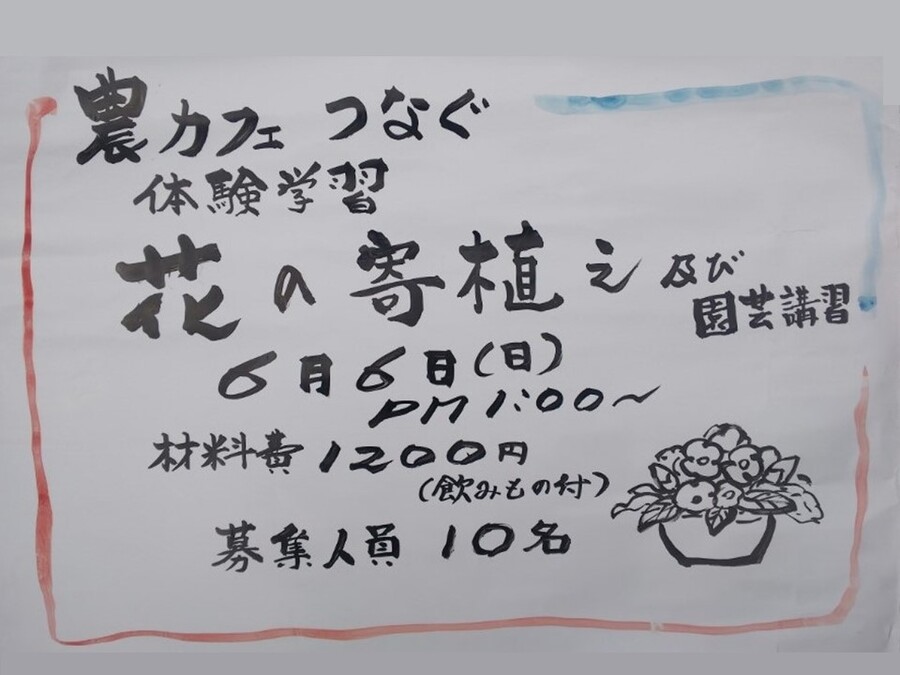 農カフェ つなぐ
体験学習
花の寄植え 及び
園芸講習
6月6日(日)
PM 1:00〜
材料費 1200円
(飲みもの付)
募集人員 10名